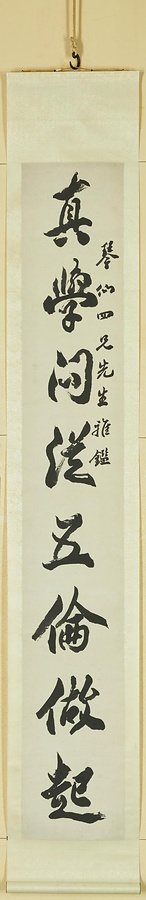 琴仙四兄先生雅鑑
真學問從五倫做起